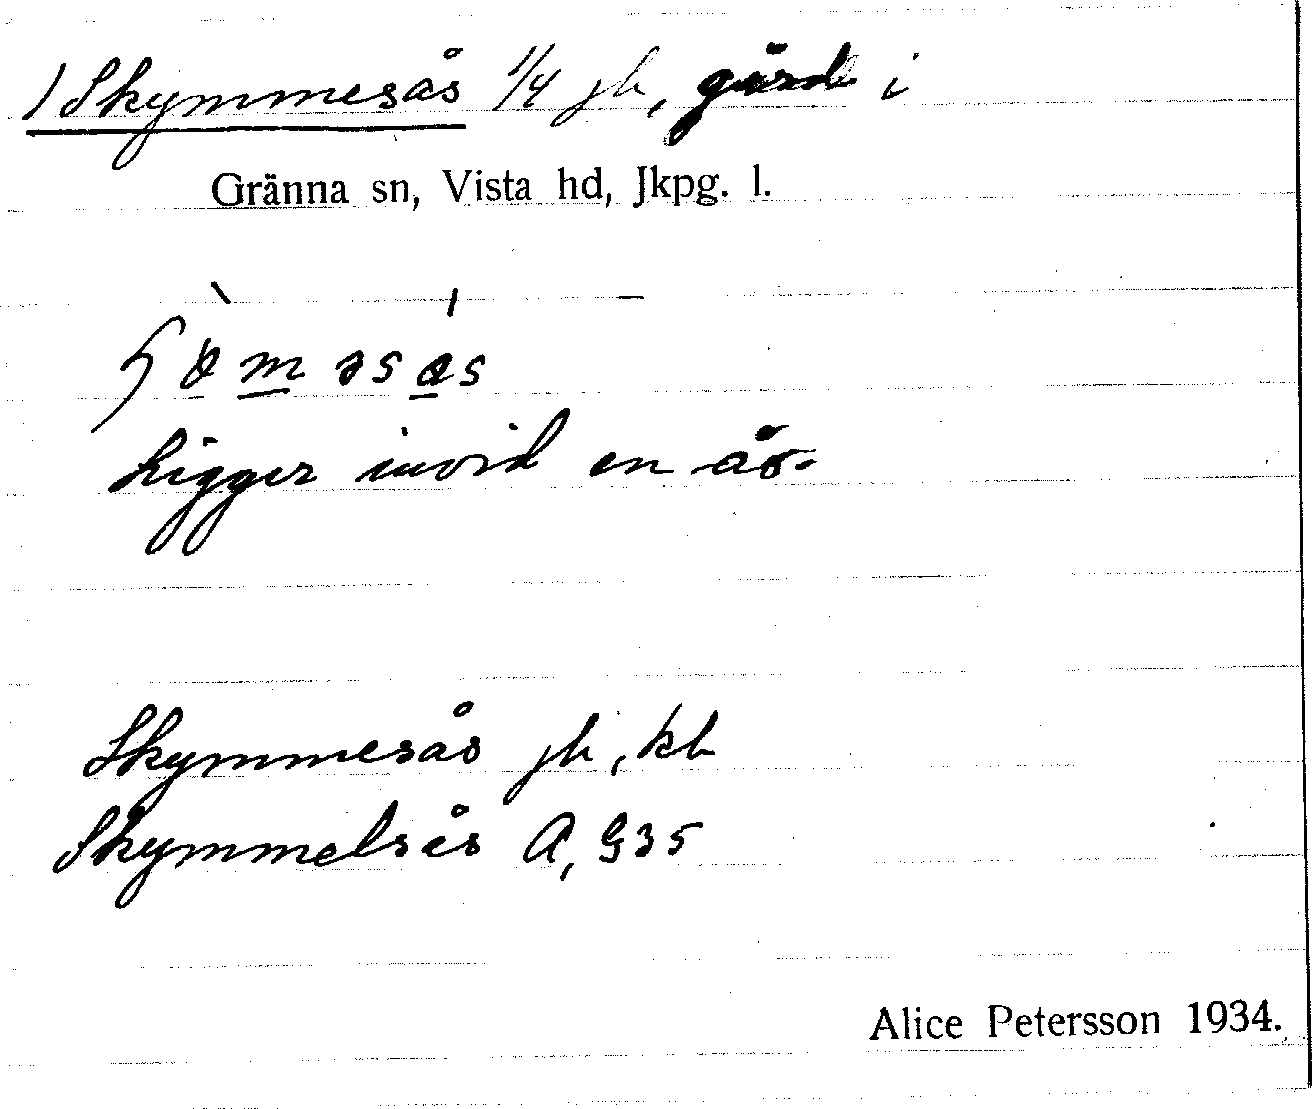 1) Skymmesås 1/4 jb, gård i
Gränna sn, Vista hd, Jkpg. l.
Ligger invid en ås.
Skymmesås jb, kb
Skymmelsås A, G35
Alice Petersson 1934.